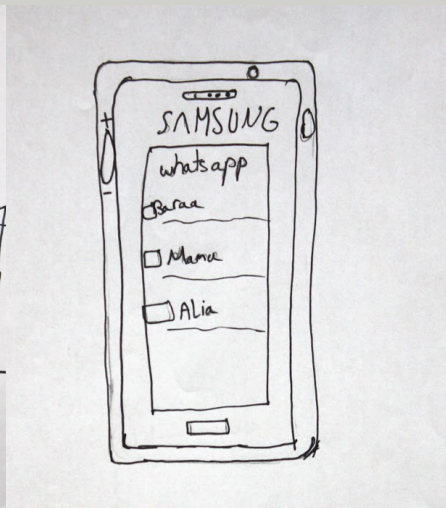 SAMSUNG
+
whatsapp
-
Baraa
Mama
ALia